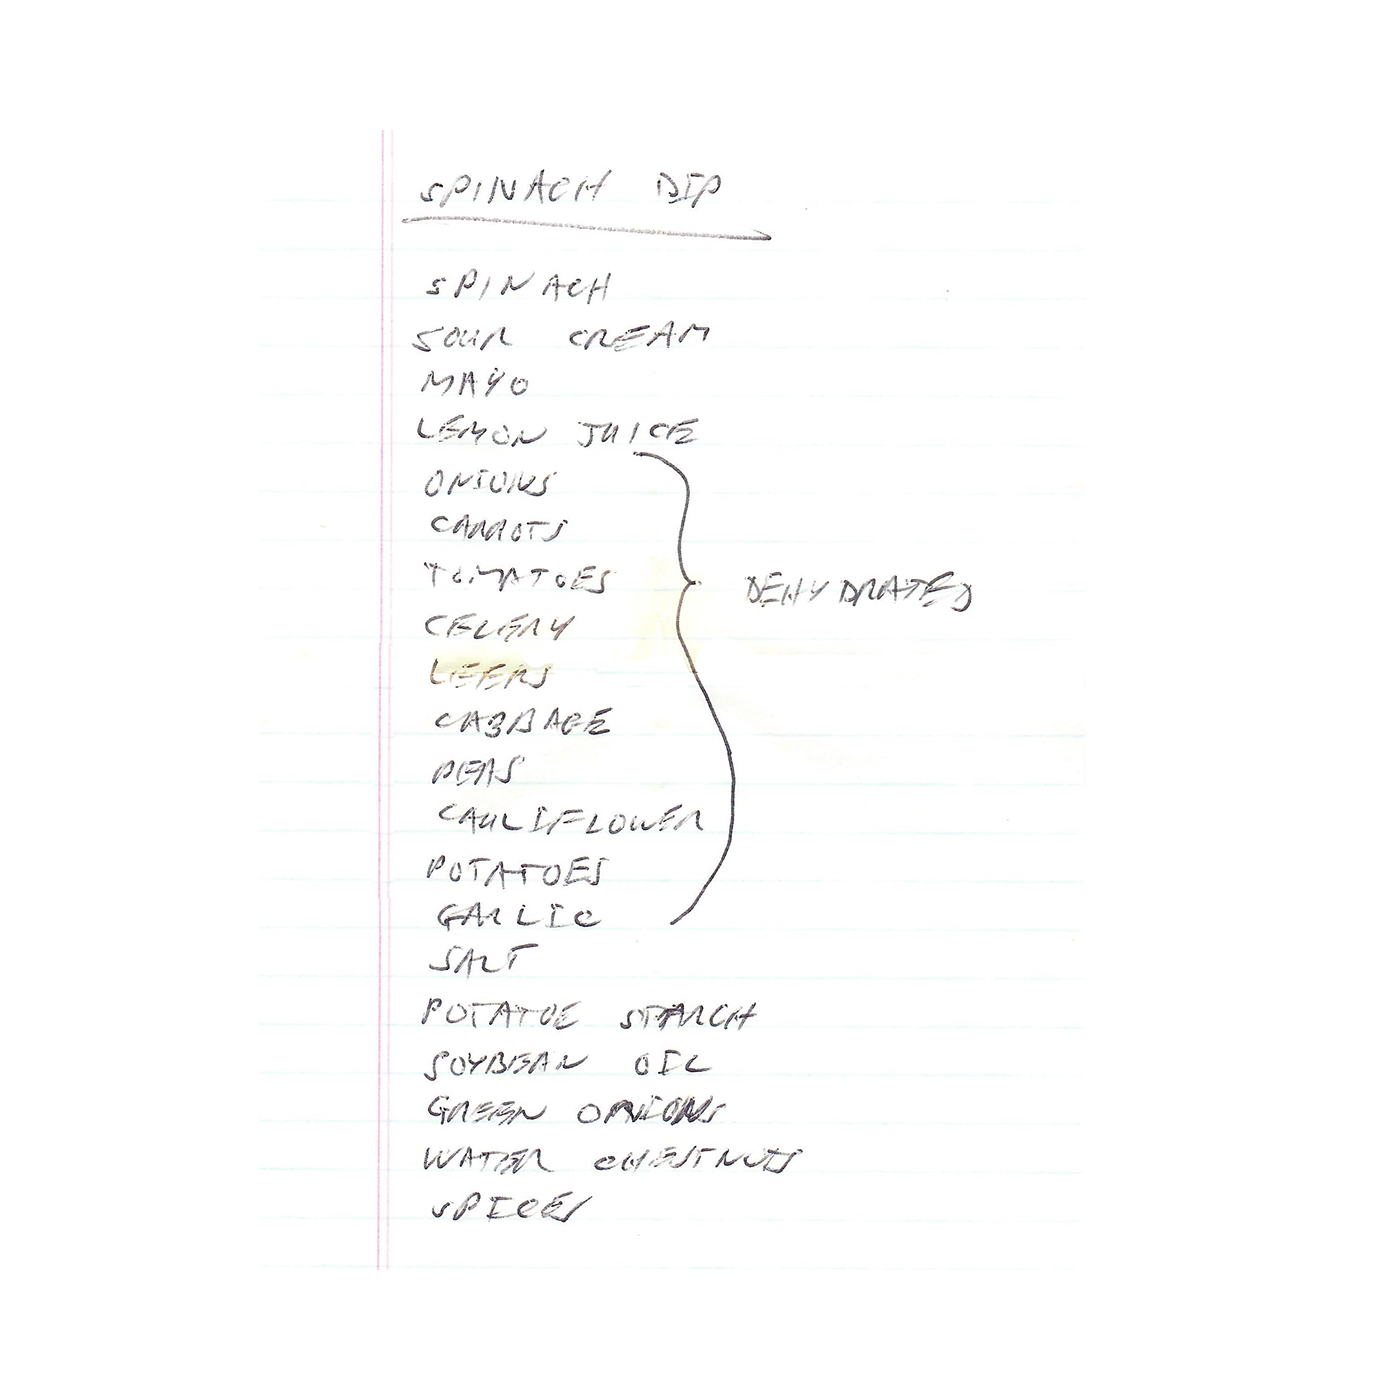 SPINACH DIP
SPINACH
SOUR CREAM
MAYO
LEMON JUICE
ONIONS
CARROTS
TOMATOES
DEHYDRATED
CELERY
LEEKS
CABBAGE
PEAS
CAULIFLOWER
POTATOES
GARLIC
SALT
POTATOE STARCH
SOYBEAN OIL
GREEN ONIONS
WATER CHESTNUTS
SPICES